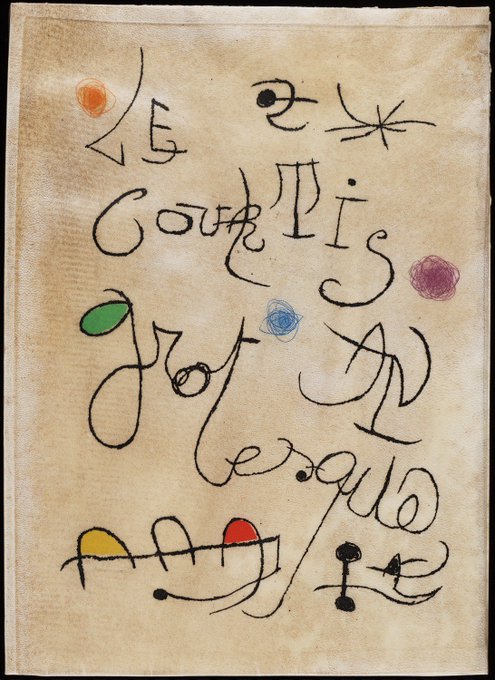 LE
COURTiS
AN
grotesque